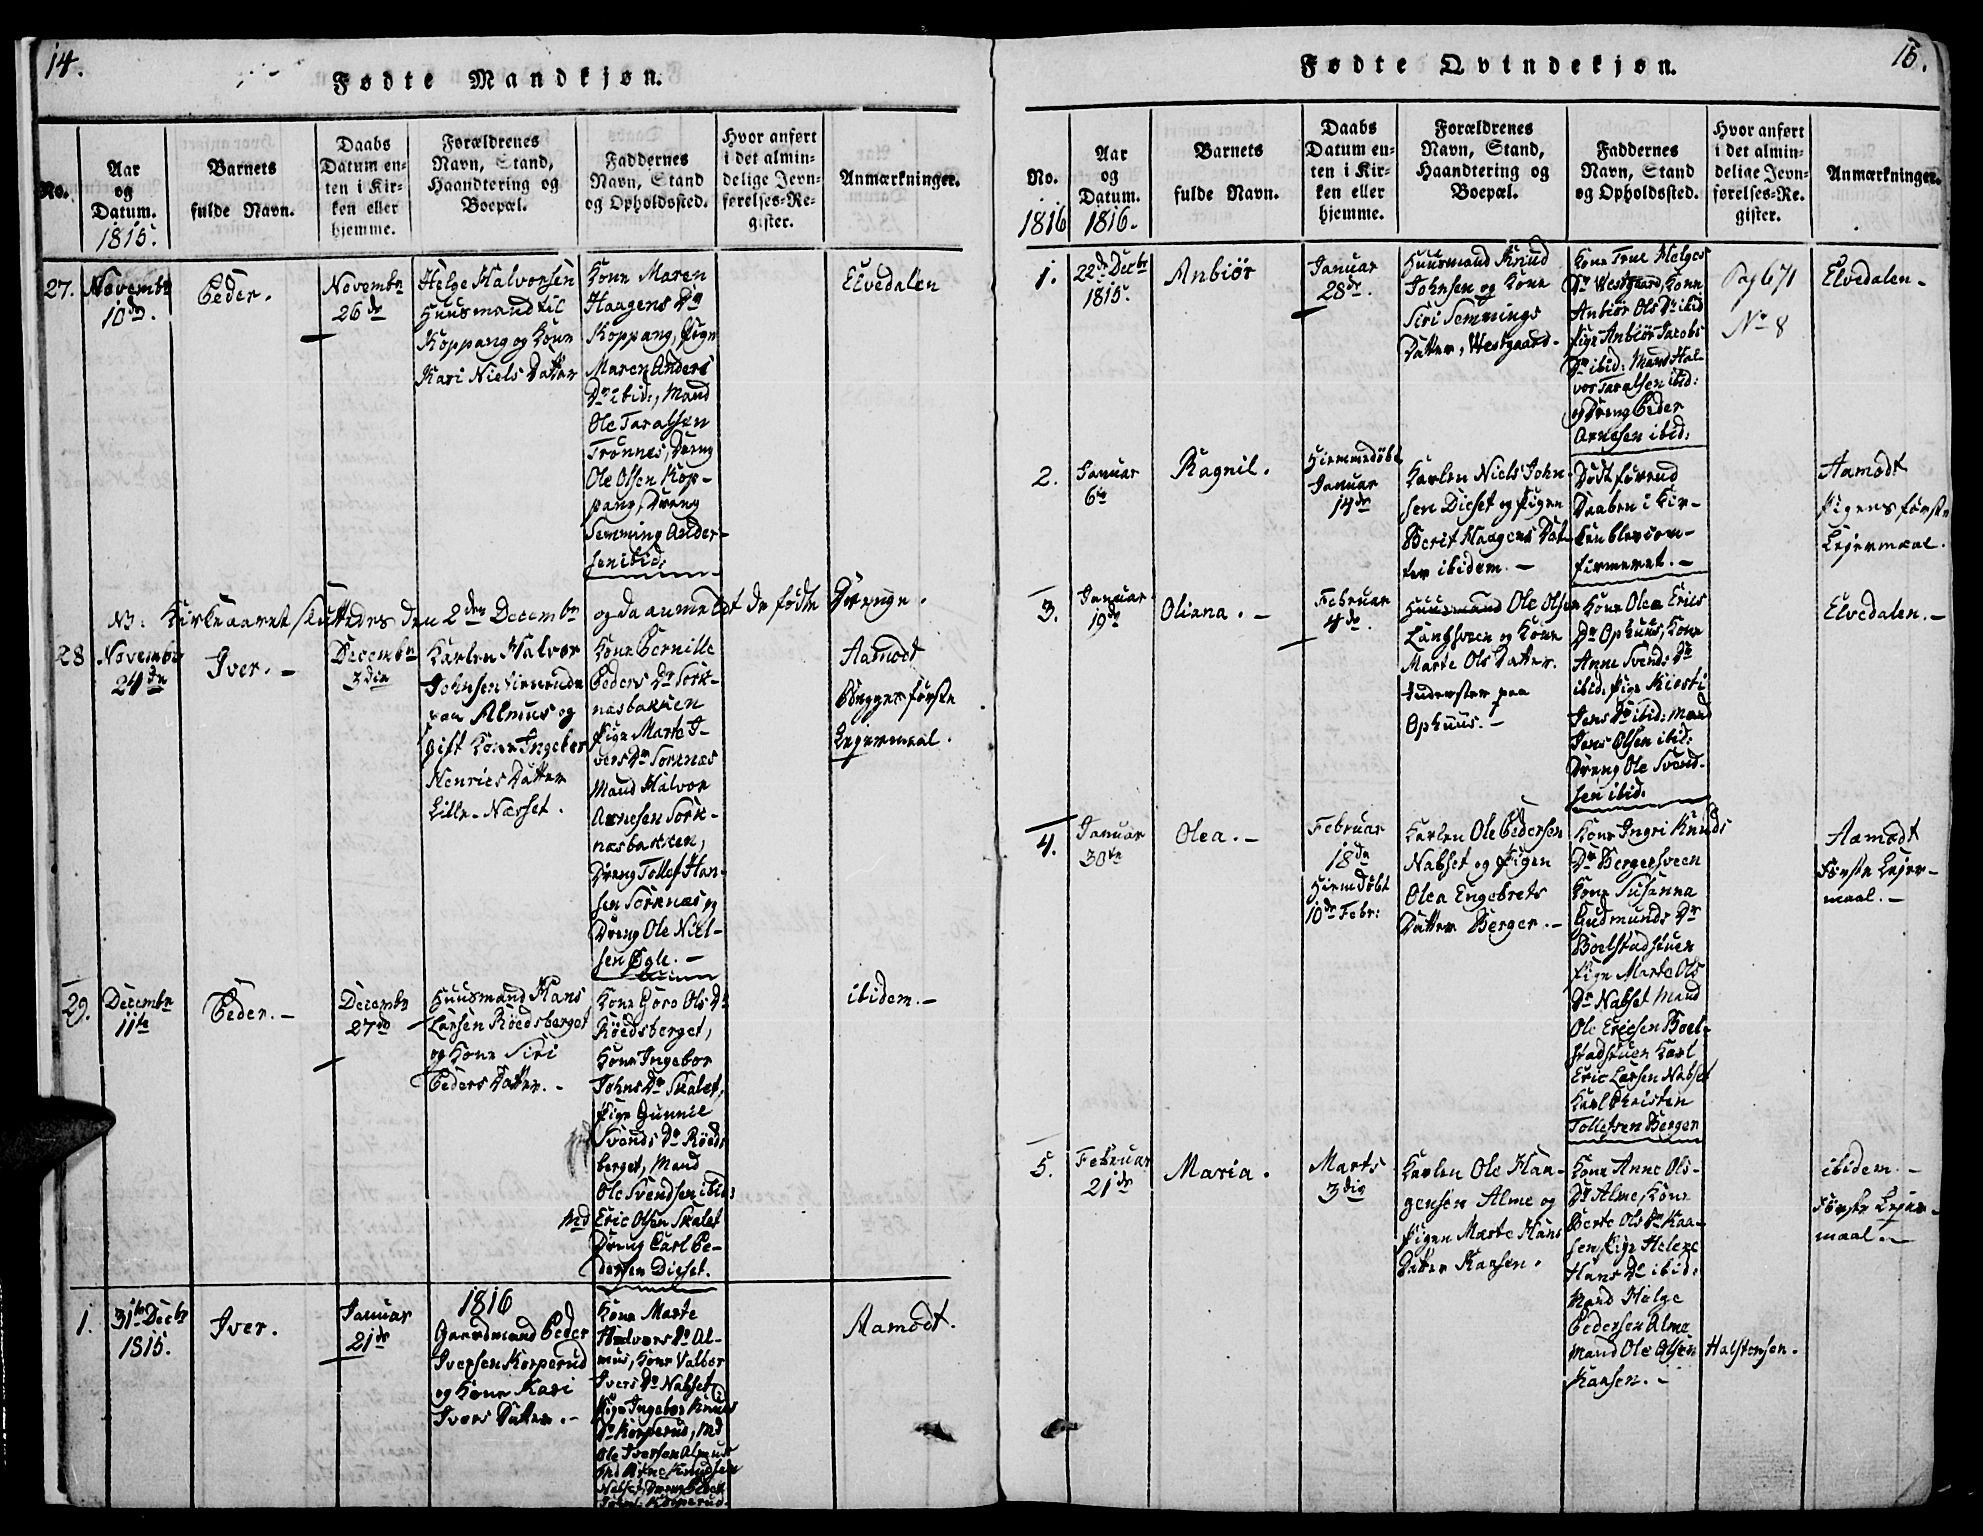 14.
Fødte Mandkjøn.
No.
Aar
og
Datum.
1815.
Barnets
fulde Navn.
Daabs
Datum en-
ten i Kir-
ken eller
hjemme.
Forældrenes
Navn, Stand,
Haandtering og
Boepæl.
Faddernes
Navn, Stand
og Opholdssted.
Hvor anført
i det almin-
delige Jevn-
førelses-Re-
gister.
Anmærkninger.
27.
Novembr
10de.
Peder.
Novembr
26de
Helge Halvorsen
Huusmand til
Koppang og Kone
Kari Niels Datter
Kone Maren
Haagens Dr
Koppang, Pige
Maren Anders
Dr ibid:, Mand
Ole Taralsen
Trønnes, Dreng
Ole Olsen Kop-
pang, Dreng
Semming Ander-
sen ibid:
Elvedalen
NB: Kirkeaaret sluttedes den 2den Decembr og da anmeldt de fødte Drenge.
28
Novembr
24de
Iver. -
Decembr
3die
Karlen Halvor
Johnsen tienende
paa Almus og
gift Kone Ingebor
Henrics Datter
Lille-Næsset.
Kone Pernille
Peders Dr Sork-
næsbakken
Pige Marte I-
vers Dr Sorknæs
Mand Halvor
Arnesen Sork-
næsbakken,
Dreng Tollef Han-
sen Sorknæs og
Dreng Ole Niel-
sen Øgle. -
Aamodt
Begges første
Lejermaal.
29.
Decembr
11te
Peder. -
Decembr
27de
Huusmand Hans
Larsen Röedsberget
og Kone Siri
Peders Datter. -
Kone Göro Ols Dr
Röedsberget,
Kone Ingebor
Johns Dr Skalet,
Pige Gunnil
Svends Dr Röeds
berget, Mand
Ole Svendsen ibid:
Md Eric Olsen Skalet
Dreng Carl Pe-
dersen Dieset.
ibidem. -
1816
1.
31te Decbr
1815.
Iver.
Januar
21de
Gaardmand Peder
Iversen Korperud
og Kone Kari
Ivers Datter. -
Kone Marte
Halvors Dr Al-
mus, Kone Valbor
Ivers Dr Nabset,
Pige Ingebor Knuds
Dr Korperud, Md
Ole Iversen Almus
Md Arne Knudsen
Nabset, Dreng Peder
Korperud
Aamodt.
15.
Fødte Qvindekjøn.
No.
1816
Aar
og
Datum.
1816.
Barnets
fulde Navn.
Daabs
Datum en-
ten i Kir-
ken eller
hjemme.
Forældrenes
Navn, Stand,
Haandtering og
Boepæl.
Faddernes
Navn, Stand
og Opholdssted.
Hvor anført
i det almin-
delige Jevn-
førelses-Re-
gister.
Anmærkninger.
1.
22de Decbr
1815.
Anbiör
Januar
28de.
Huusmand Knud
Johnsen og Kone
Siri Semmings
Datter, Westgaard-
Kone Frue Helges
Dr Westgaard, Kone
Anbiör Ols Dr ibid
Pige Anbiör Jacobs
Dr ibid: Mand Hal-
vor Taralsen ibid:
og Dreng Peder
Arnesen ibid:
Pag 671
No 8
Elvedalen-
2.
Januar
6te
Ragnil.
Hiemmedøbt
Januar
14de
Karlen Niels John-
sen Dieset og Pigen
Berit Haagens Dat-
ter ibidem. -
Dødt førend
Daaben i Kir-
ken blev con-
firmeret. -
Aamodt
Pigens første
Lejermaal.
3.
Januar
19de
Oliana. -
Februar
4de.
Huusmand Ole Olsen
Langsveen og Kone
Marte Ols Datter.
Inderster paa
Ophuus. -
Kone Olea Erics
Dr Ophuus, Kone
Anne Svends Dr
ibid: Pige Kiersti
Jens Dr ibid: Mand
Jens Olsen ibid:
Dreng Ole Svend-
sen ibid.
Elvedalen. -
4.
Januar
30te
Olea. -
Februar
18de
Hiemdøbt
10de Febr:
Karlen Ole Pedersen
Nabset og Pigen
Olea Engebrets
Datter Berger. -
Kone Ingri Knuds
Dr Bergersveen
Kone Susanna
Gudmunds Dr
Boelstadstuen
Pige Marte Ols
Dr Nabset Mand
Ole Ericsen Boel-
stadstuen Karl
Eric Larsen Nabset
Karl Christen
Tollefsen Berger
Aamodt
Første Lejer-
maal. -
5.
Februar
21de
Maria.
Marts
3die
Karlen Ole Haa-
gensen Alme og
Pigen Marte Hans
Datter Kaasen.
Kone Anne Ols-
Dr Alme, Kone
Berte Ols Dr Kaa-
sen, Pige Helene
Hans Dr ibid:
Mand Helge
Pedersen Alme
Mand Ole Olsen Halstensen.
Kaasen. -
ibidem. -
Første Lejer-
maal. -